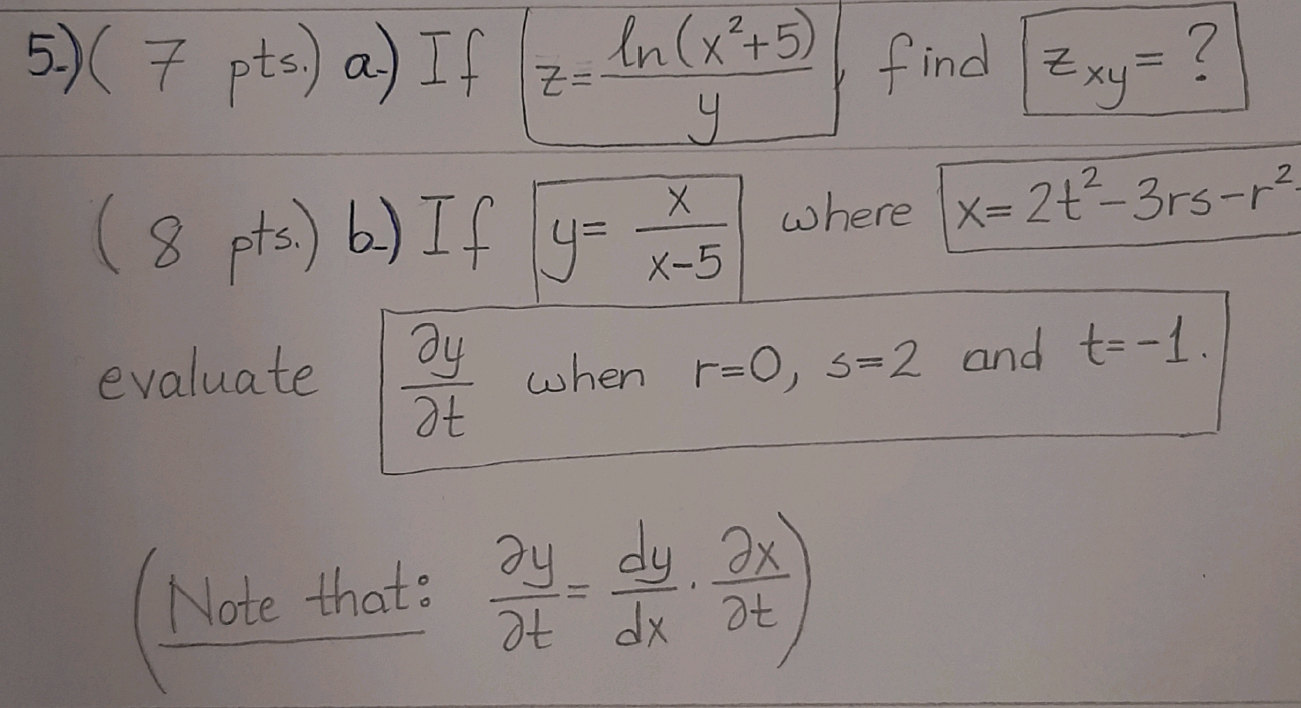 5.) ( 7 pts.) a.) If z = ln(x²+5)/y, find z_xy = ?
( 8 pts.) b.) If y = x/(x-5) where x = 2t²-3rs-r²
evaluate ∂y/∂t when r=0, s=2 and t=-1.
(Note that: ∂y/∂t = dy/dx · ∂x/∂t)